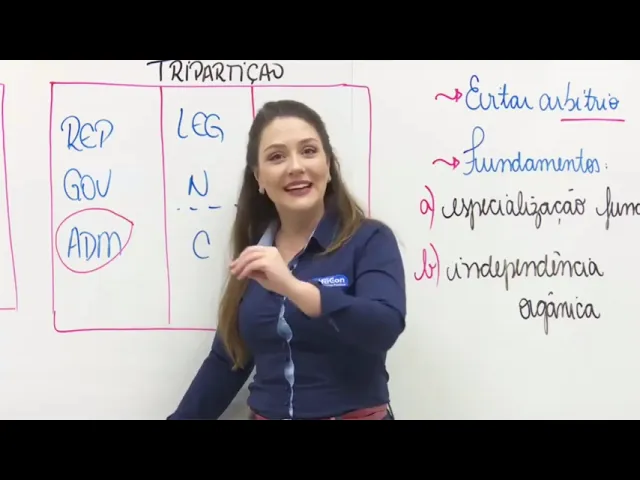 TRIPARTIÇÃO
REP LEG
GOV N
ADM C
Evitar arbítrio
Fundamentos:
a) especialização func
b) independência
orgânica